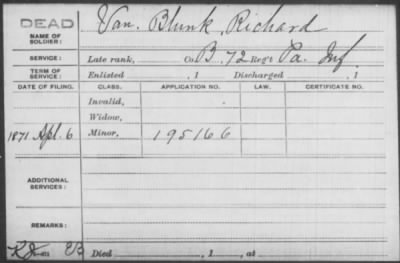 DEAD
NAME OF SOLDIER: Van Blunk, Richard
SERVICE: Late rank, Co. B, 72 Reg't Pa. Inf.
TERM OF SERVICE: Enlisted , 1 Discharged , 1
DATE OF FILING. CLASS. APPLICATION NO. LAW. CERTIFICATE NO.
Invalid,
Widow,
1871 Apl. 6 Minor, 195166
ADDITIONAL SERVICES:
REMARKS:
Died , 1 , at